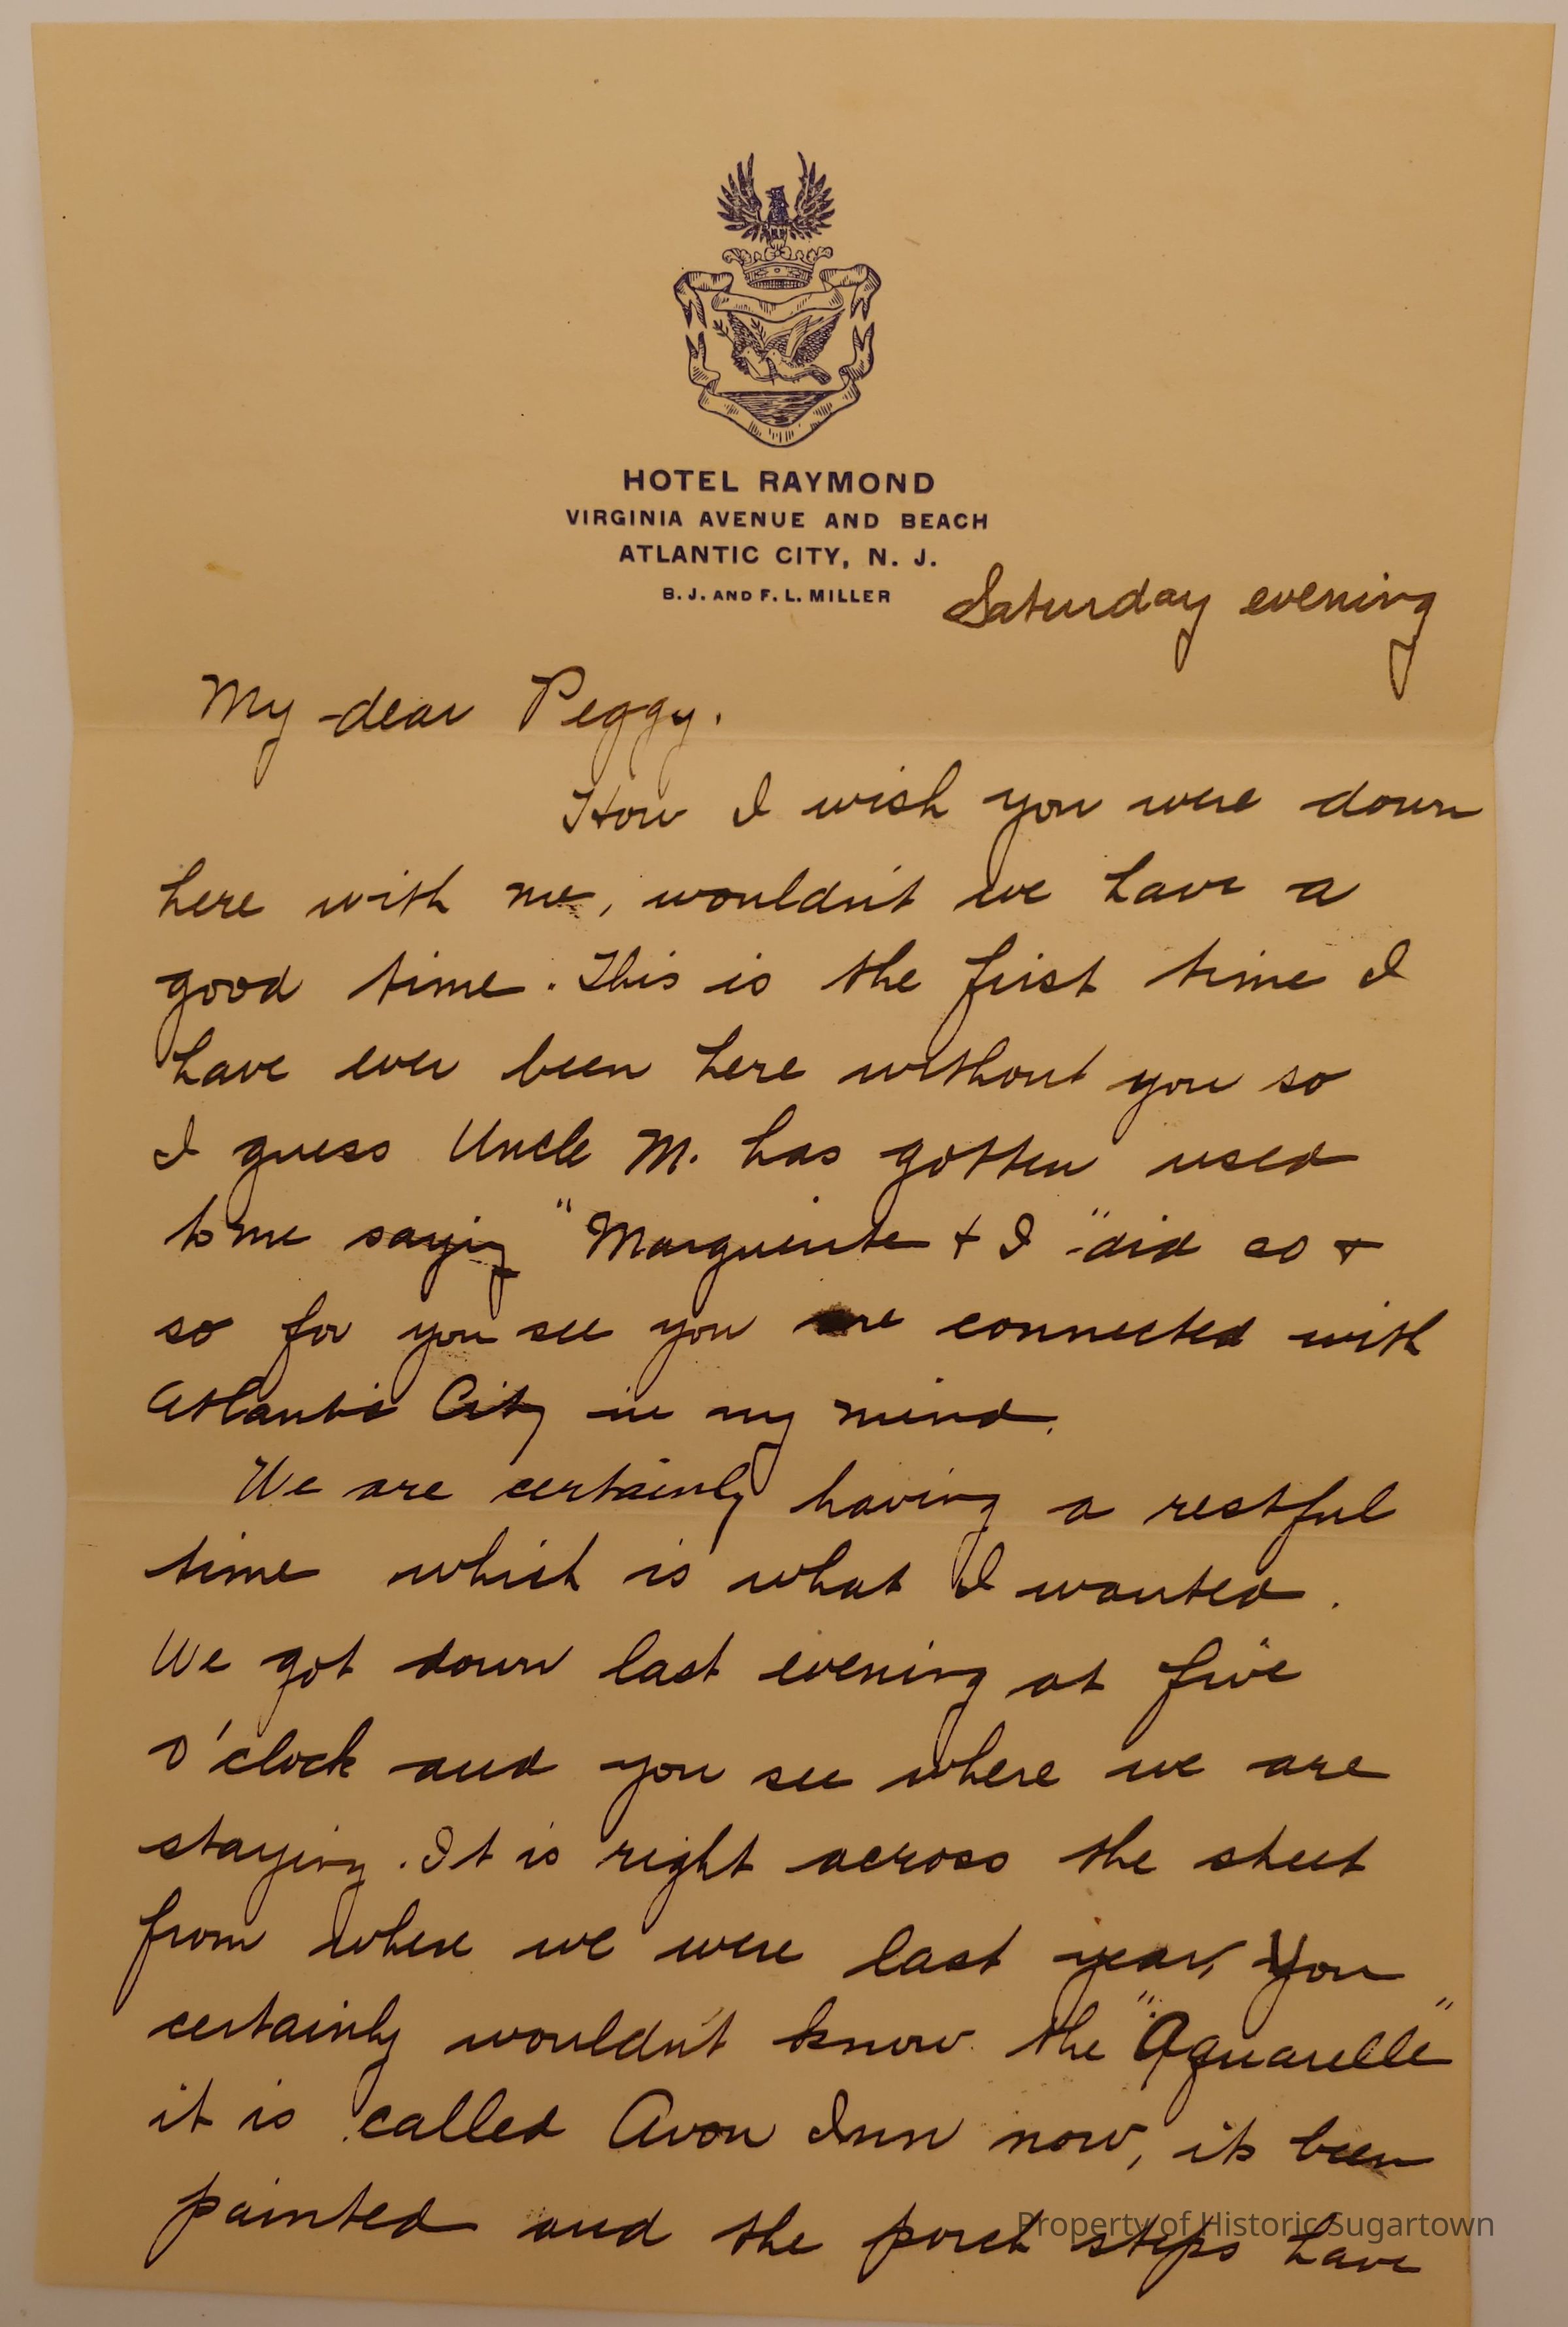 HOTEL RAYMOND
VIRGINIA AVENUE AND BEACH
ATLANTIC CITY, N. J.
B. J. AND F. L. MILLER
Saturday evening
My dear Peggy.
How I wish you were down
here with me, wouldn't we have a
good time. This is the first time I
have ever been here without you so
I guess Uncle M. has gotten used
to me saying "Marguerite + I" did so +
so for you see you are connected with
Atlantic City in my mind.
We are certainly having a restful
time which is what I wanted.
We got down last evening at five
o'clock and you see where we are
staying. It is right across the street
from where we were last year, You
certainly wouldn't know the "Aquarelle"
it is called Avon Inn now, its been
painted and the porch steps have
Property of Historic Sugartown